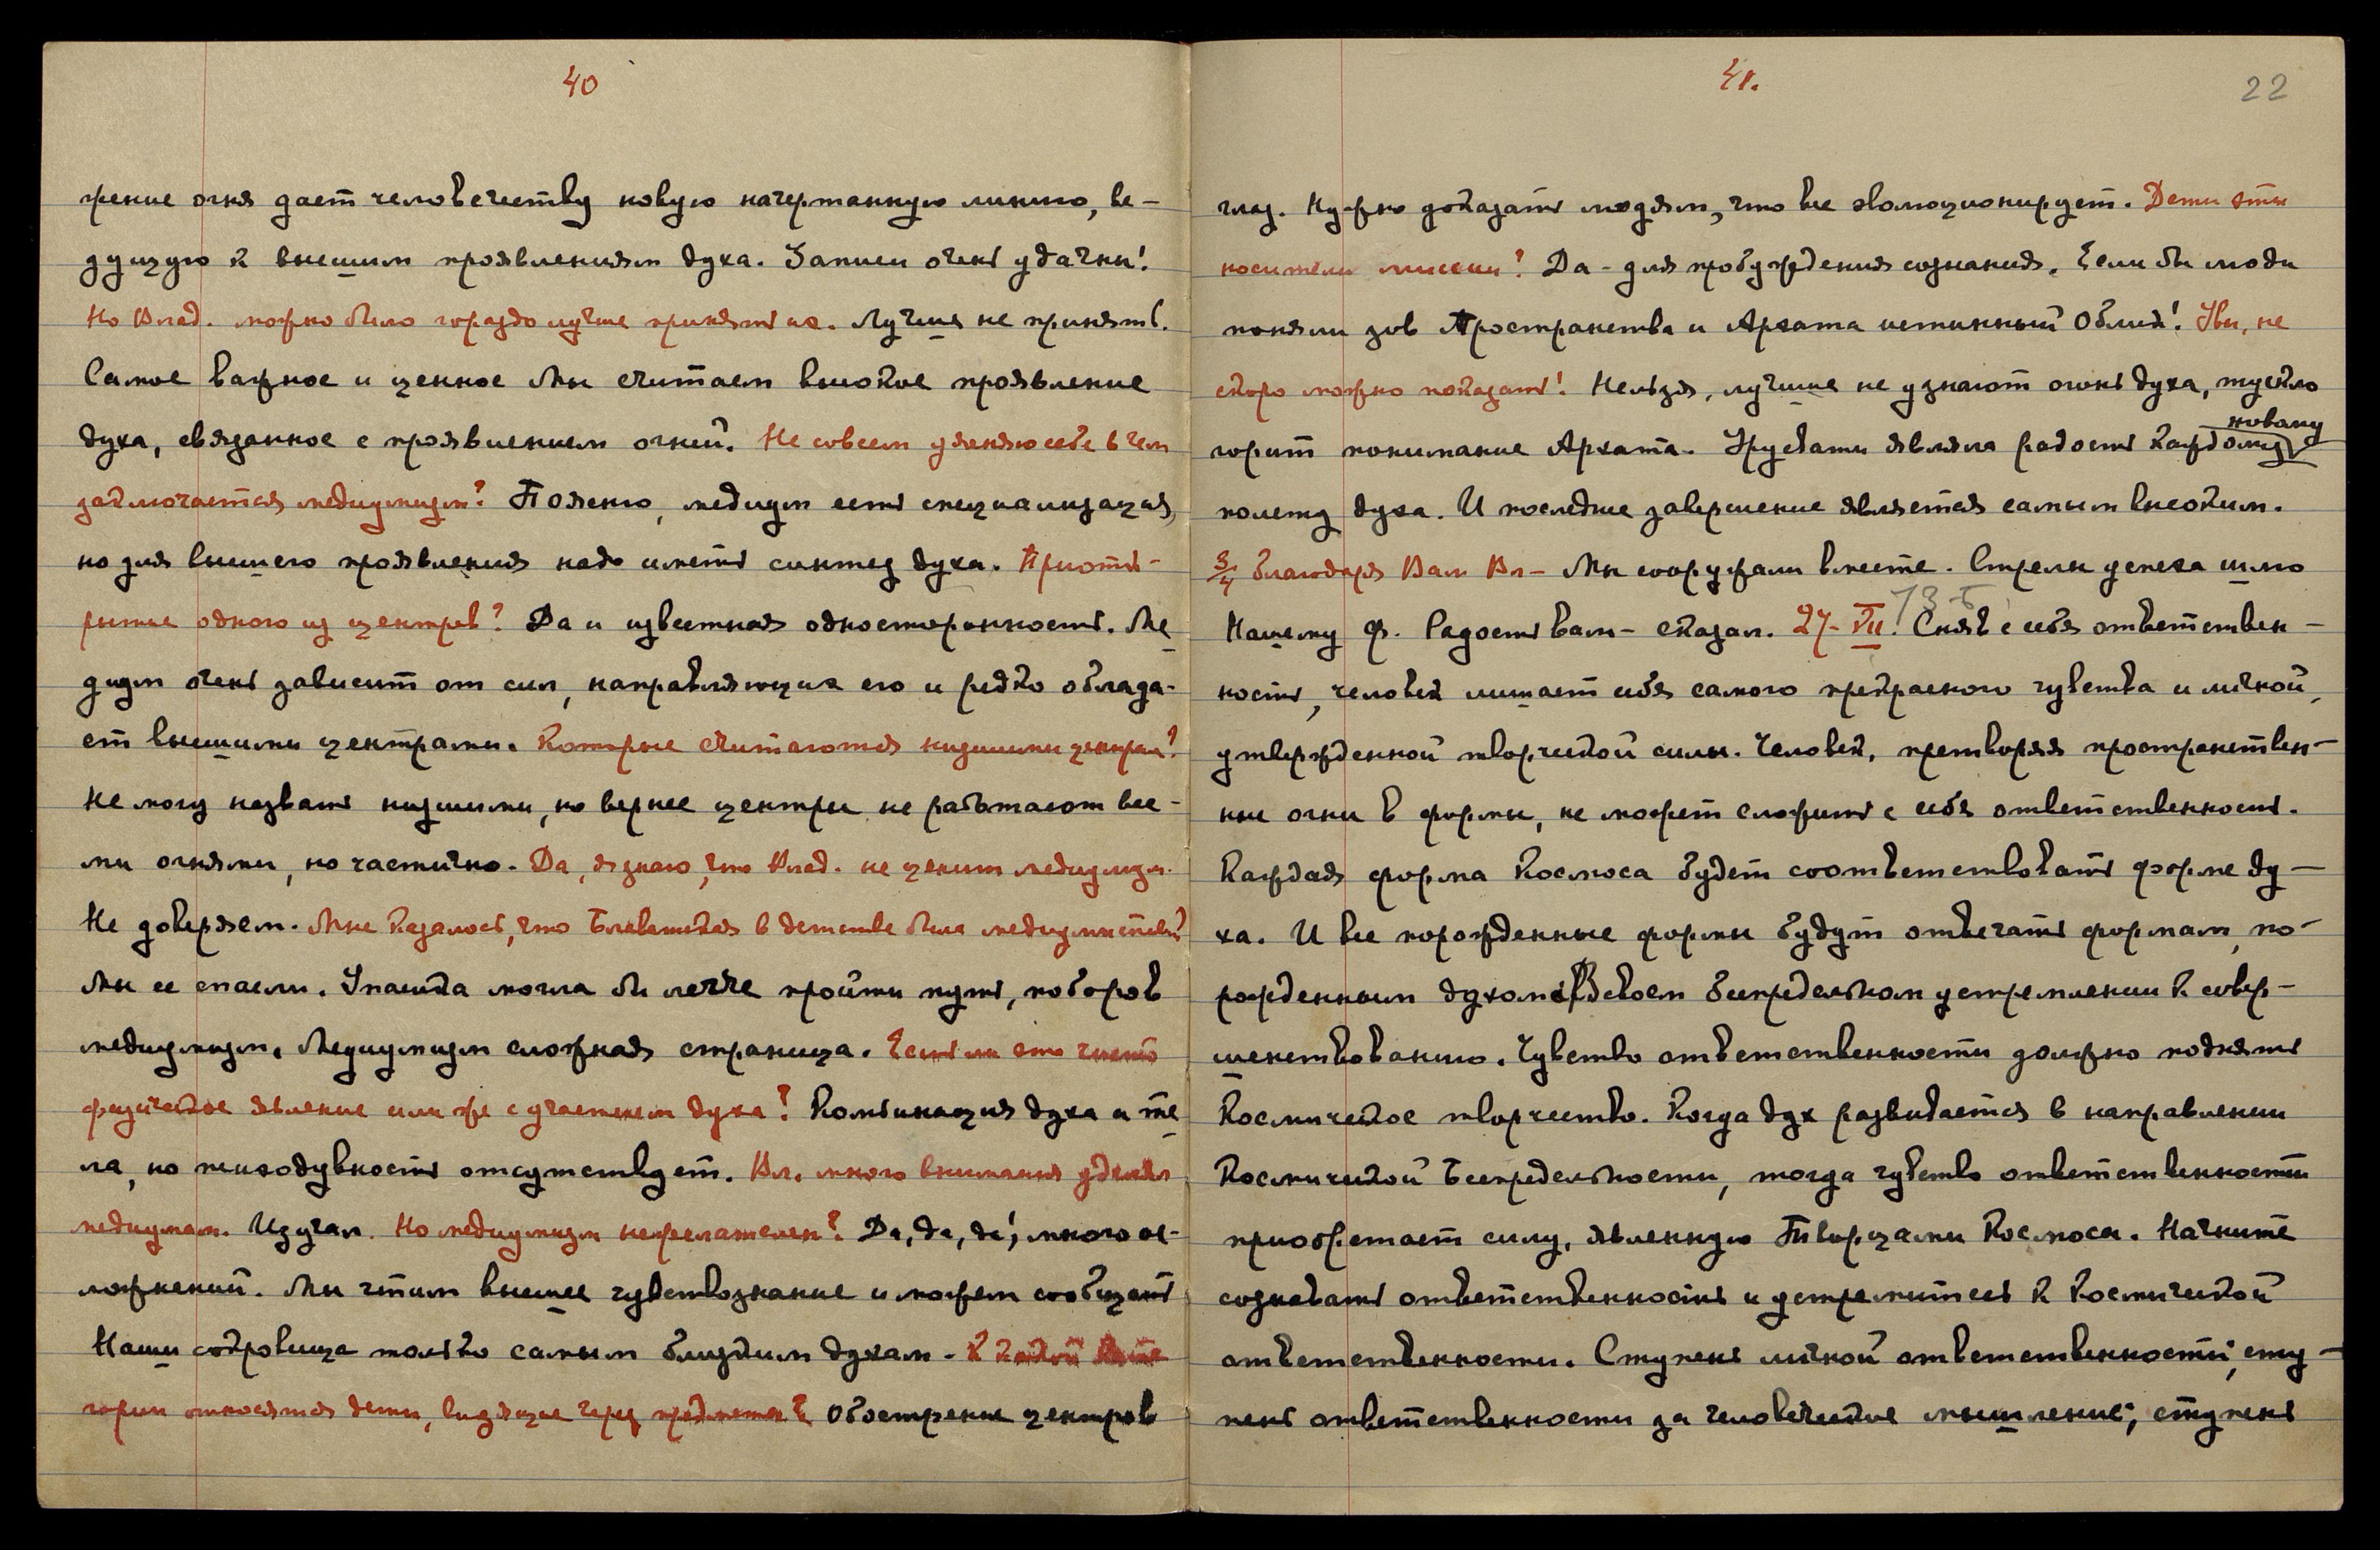 40
жение огня дает человечеству новую начертанную линию, ве-
дущую к высшим проявлениям духа. Записи очень удачны!
Но Влад. можно было гораздо лучше принять их. Лучше не принять.
Самое важное и ценное Мы считаем высокое проявление
духа, связанное с проявлением огней. Не совсем уясняю себе в чем
заключается медиумизм? Поясню, медиум есть специализация,
но для высшего проявления надо иметь синтез духа. Приотк-
рытие одного из центров? Да и известная односторонность. Ме
диум очень зависит от сил, направляющих его и редко облада-
ет высшими центрами. Которые считаются низшими центрам?
Не могу назвать низшими, но вернее центры не работают все-
ми огнями, но частично. Да, я знаю, что Влад. не ценит медиумизм.
Не доверяем. Мне казалось, что Блаватская в детстве была медиумисткой?
Мы ее спасли. Упасика могла бы легче пройти путь, поборов
медиумизм. Медиумизм сложная страница. Есть ли это чисто
физическое явление или же с участием духа? Комбинация духа и те
ла, но психодувность отсутствует. Вл. много внимания уделял
медиумам. Изучал. Но медиумизм нежелателен? Да, да, да!, много ос-
ложнений. Мы чтим высшее чувствознание и можем сообщать
Наши сокровища только самым близким духам. К какой кате
гории относятся дети, видящие через предметы? Обострение центров
41.
22
глаз. Нужно доказать людям, что все эволюционирует. Дети эти
носители миссии? Да - для пробуждения сознания. Если бы люди
поняли зов Пространства и Архата истинный Облик! Увы, не
скоро можно показать! Нельзя, лучшие не узнают огонь духа, тускло
горит понимание Архата. Урусвати являла радость каждому
новому
полету духа. И последнее завершение является самым высоким.
3/4 благодаря Вам Вл- Мы сооружали вместе. Стрелы успеха шлю
Нашему Ф. Радость вам - сказал. 27- VII. Сняв с себя ответствен-
ность, человек лишает себя самого прекрасного чувства и личной,
утвержденной творческой силы. Человек, претворяя пространствен-
ные огни в формы, не может сложить с себя ответственность.
Каждая форма Космоса будет соответствовать форме ду-
ха. И все порожденные формы будут отвечать формам, по-
рожденным духом в своем беспредельном устремлении к совер-
шенствованию. Чувство ответственности должно поднять
Космическое творчество. Когда дух развивается в направлении
Космической Беспредельности, тогда чувство ответственности
приобретает силу, явленную Творцами Космоса. Начните
сознавать ответственность и устремитесь к Космической
ответственности. Ступень личной ответственности; сту-
пень ответственности за человеческое мышление; ступень